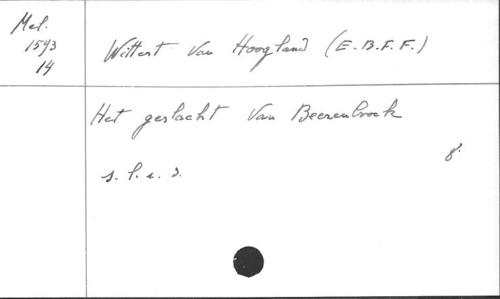 Mel.
1593
14
Wittert van Hoogland (E.B.F.F.)
Het geslacht van Beerenbrock
s. l. e. d.
8°